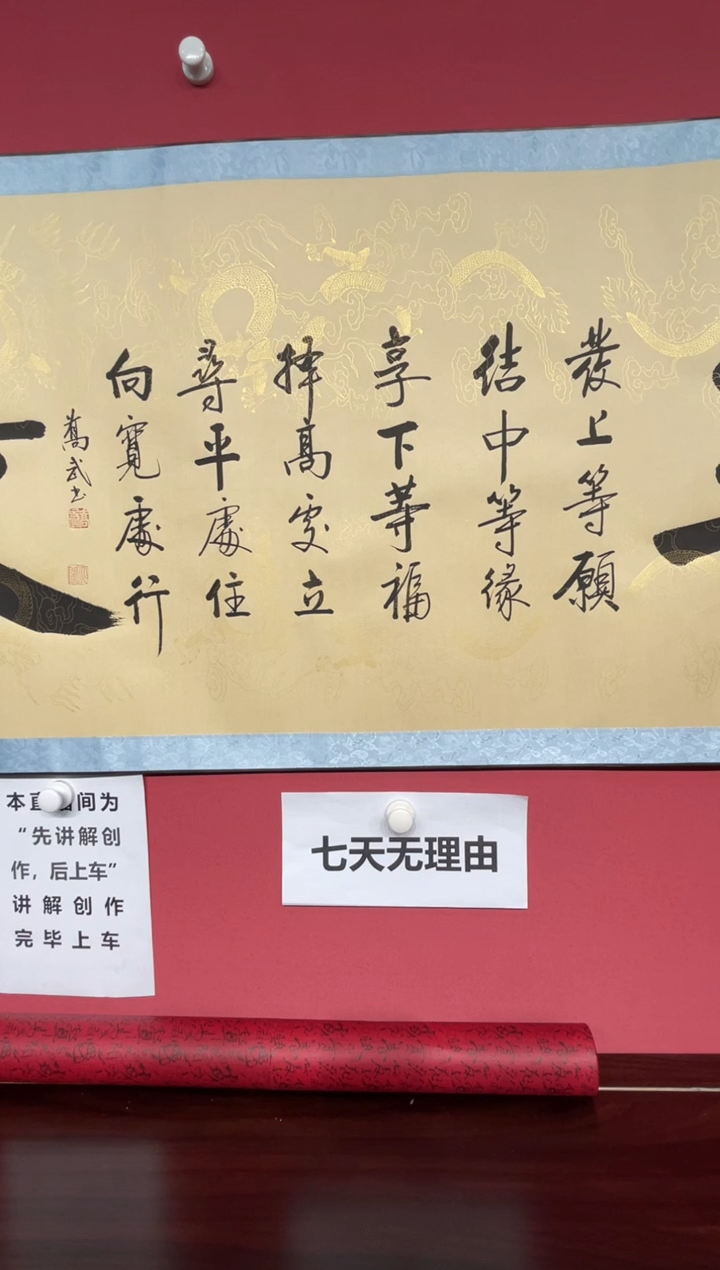 發上等願
结中等缘
享下等福
择高处立
尋平處住
向寬處行
萬武书
本直 间为
“先讲解创
作，后上车”
讲解创作
完毕上车
七天无理由